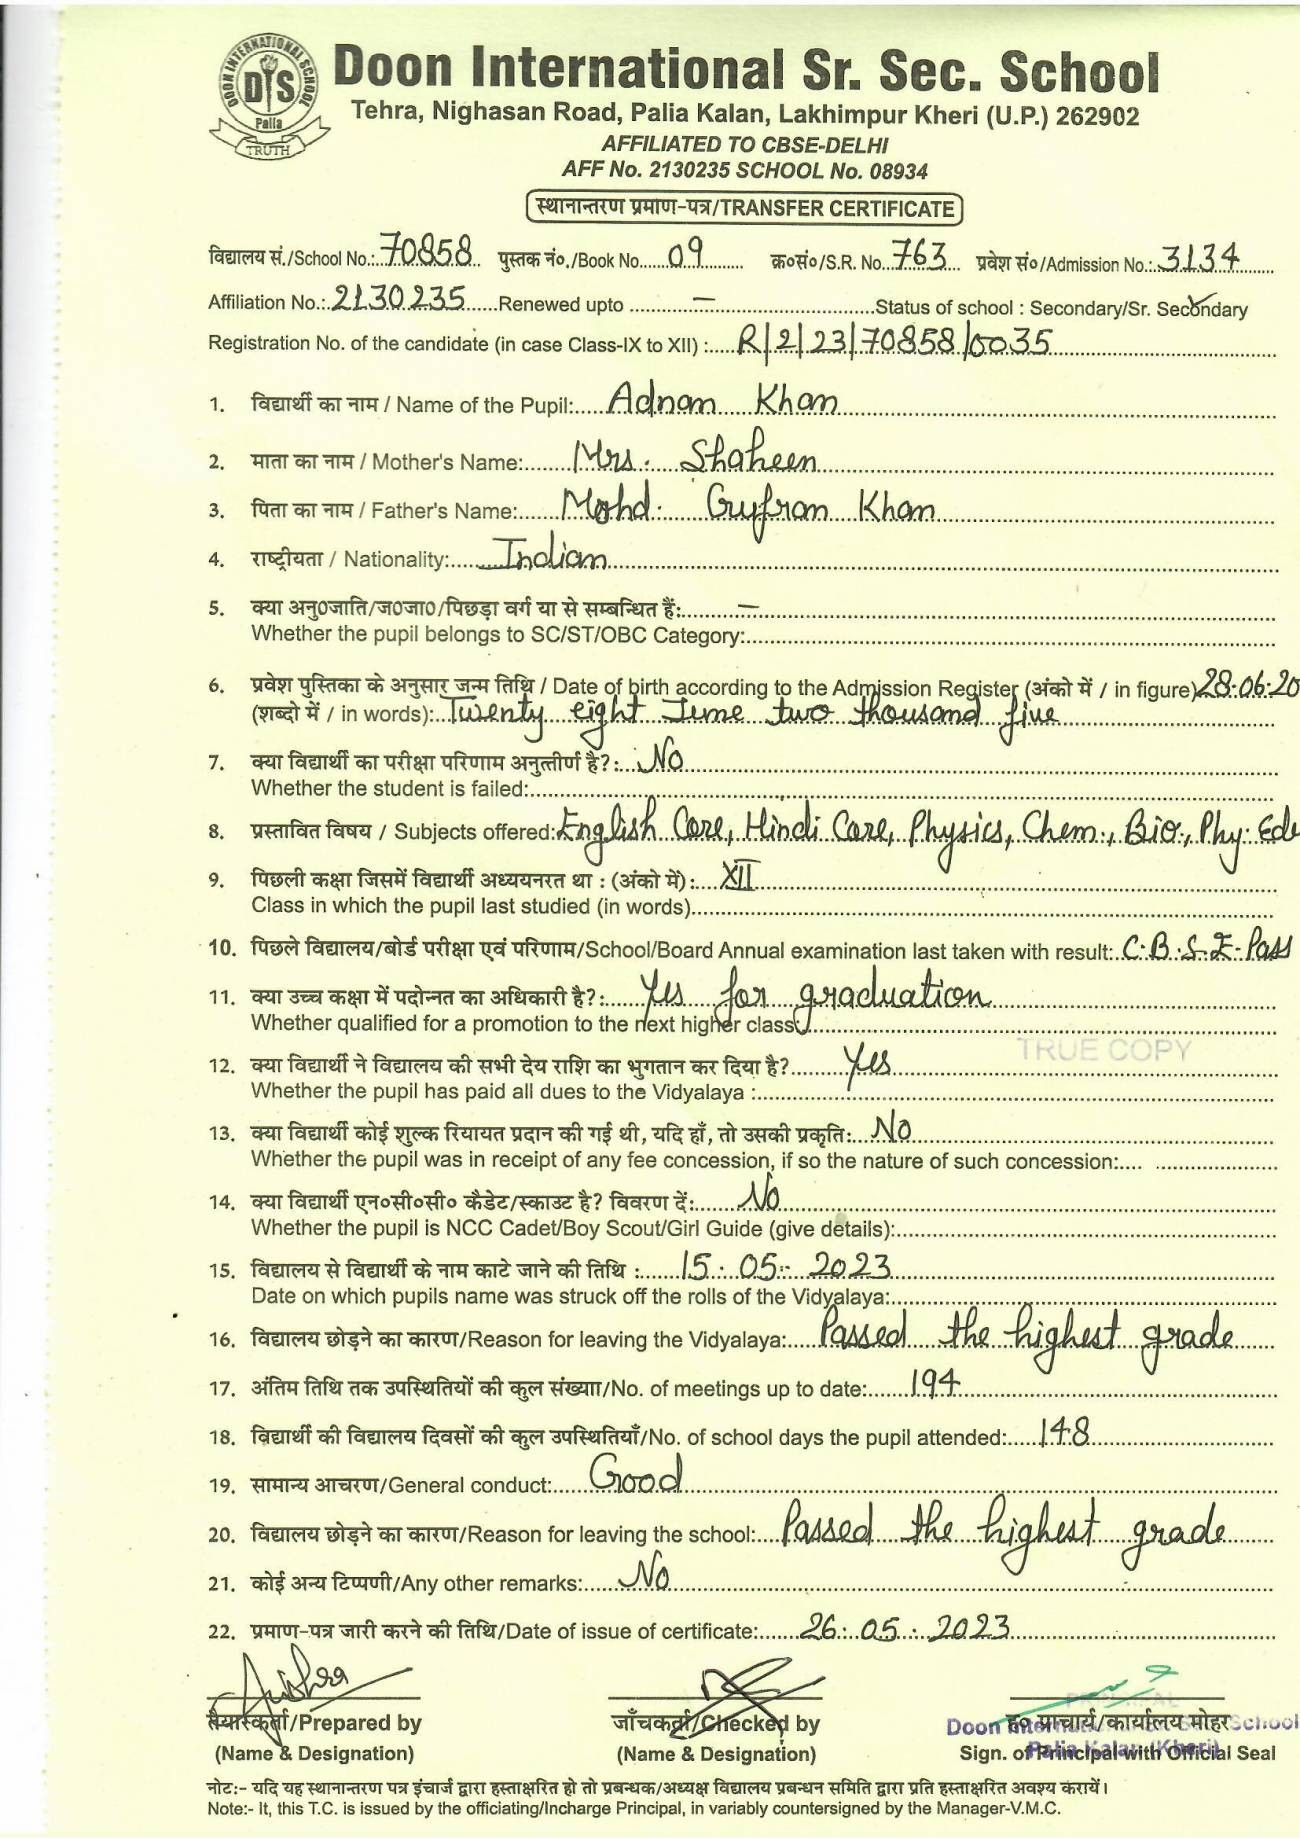 DOON INTERNATIONAL SCHOOL
DIS
Palia
TRUTH
Doon International Sr. Sec. School
Tehra, Nighasan Road, Palia Kalan, Lakhimpur Kheri (U.P.) 262902
AFFILIATED TO CBSE-DELHI
AFF No. 2130235 SCHOOL No. 08934
स्थानान्तरण प्रमाण-पत्र/TRANSFER CERTIFICATE
विद्यालय सं./School No.: 70858 पुस्तक नं०./Book No. 09 क्र०सं०/S.R. No. 763 प्रवेश सं०/Admission No.: 3134
Affiliation No.: 2130235 Renewed upto — Status of school : Secondary/Sr. Secondary
Registration No. of the candidate (in case Class-IX to XII) : R/2/23/70858/0035
1. विद्यार्थी का नाम / Name of the Pupil: Adnan Khan
2. माता का नाम / Mother's Name: Mrs. Shaheen
3. पिता का नाम / Father's Name: Mohd. Gufran Khan
4. राष्ट्रीयता / Nationality: Indian
5. क्या अनु0जाति/ज0जा0/पिछड़ा वर्ग या से सम्बन्धित हैं: —
Whether the pupil belongs to SC/ST/OBC Category:
6. प्रवेश पुस्तिका के अनुसार जन्म तिथि / Date of birth according to the Admission Register (अंको में / in figure) 28.06.20
(शब्दो में / in words): Twenty eight June two thousand five
7. क्या विद्यार्थी का परीक्षा परिणाम अनुत्तीर्ण है?: No
Whether the student is failed:
8. प्रस्तावित विषय / Subjects offered: English Core, Hindi Core, Physics, Chem., Bio., Phy. Edu
9. पिछली कक्षा जिसमें विद्यार्थी अध्ययनरत था : (अंको में): XII
Class in which the pupil last studied (in words)
10. पिछले विद्यालय/बोर्ड परीक्षा एवं परिणाम/School/Board Annual examination last taken with result: C.B.S.E. Pass
11. क्या उच्च कक्षा में पदोन्नत का अधिकारी है?: Yes for graduation
Whether qualified for a promotion to the next higher class
TRUE COPY
12. क्या विद्यार्थी ने विद्यालय की सभी देय राशि का भुगतान कर दिया है? Yes
Whether the pupil has paid all dues to the Vidyalaya :
13. क्या विद्यार्थी कोई शुल्क रियायत प्रदान की गई थी, यदि हाँ, तो उसकी प्रकृति: No
Whether the pupil was in receipt of any fee concession, if so the nature of such concession:
14. क्या विद्यार्थी एन०सी०सी० कैडेट/स्काउट है? विवरण दें: No
Whether the pupil is NCC Cadet/Boy Scout/Girl Guide (give details):
15. विद्यालय से विद्यार्थी के नाम काटे जाने की तिथि : 15. 05. 2023
Date on which pupils name was struck off the rolls of the Vidyalaya:
16. विद्यालय छोड़ने का कारण/Reason for leaving the Vidyalaya: Passed the highest grade
17. अंतिम तिथि तक उपस्थितियों की कुल संख्या/No. of meetings up to date: 194
18. विद्यार्थी की विद्यालय दिवसों की कुल उपस्थितियाँ/No. of school days the pupil attended: 148
19. सामान्य आचरण/General conduct: Good
20. विद्यालय छोड़ने का कारण/Reason for leaving the school: Passed the highest grade
21. कोई अन्य टिप्पणी/Any other remarks: No
22. प्रमाण-पत्र जारी करने की तिथि/Date of issue of certificate: 26. 05. 2023
तैयारकर्ता/Prepared by जाँचकर्ता/Checked by ह० प्राचार्य/कार्यालय मोहर
PRINCIPAL
Doon International School
Palia Kalan (Kheri)
(Name & Designation) (Name & Designation) Sign. of Principal with Official Seal
नोट:- यदि यह स्थानान्तरण पत्र इंचार्ज द्वारा हस्ताक्षरित हो तो प्रबन्धक/अध्यक्ष विद्यालय प्रबन्धन समिति द्वारा प्रति हस्ताक्षरित अवश्य करायें।
Note:- It, this T.C. is issued by the officiating/Incharge Principal, in variably countersigned by the Manager-V.M.C.